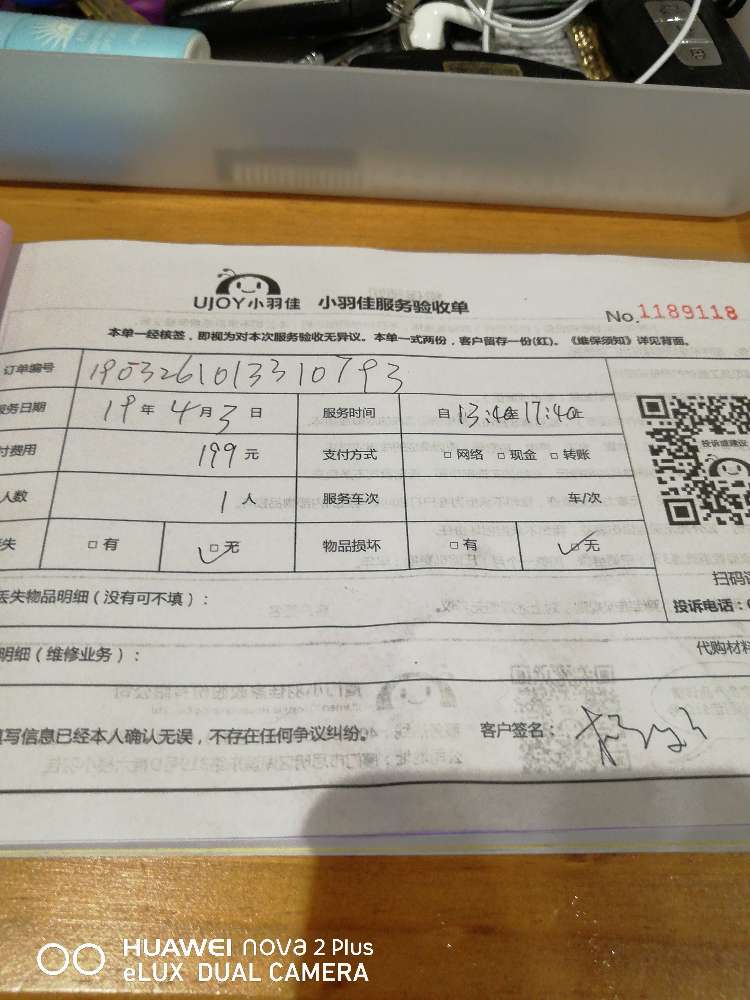 UJOY小羽佳 小羽佳服务验收单
No.1189118
本单一经核签,即视为对本次服务验收无异议。本单一式两份,客户留存一份(红)。《维保须知》详见背面。
订单编号 1903261013310793
务日期 19年4月3日 服务时间 自13:40至17:40止
付费用 199元 支付方式 □网络 □现金 □转账
投诉或建议
人数 1人 服务车次 车/次
失 □有 □无 物品损坏 □有 □无
扫码
丢失物品明细(没有可不填):
投诉电话:
明细(维修业务):
代购材料
填写信息已经本人确认无误,不存在任何争议纠纷。 客户签名:
HUAWEI nova 2 Plus
eLUX DUAL CAMERA